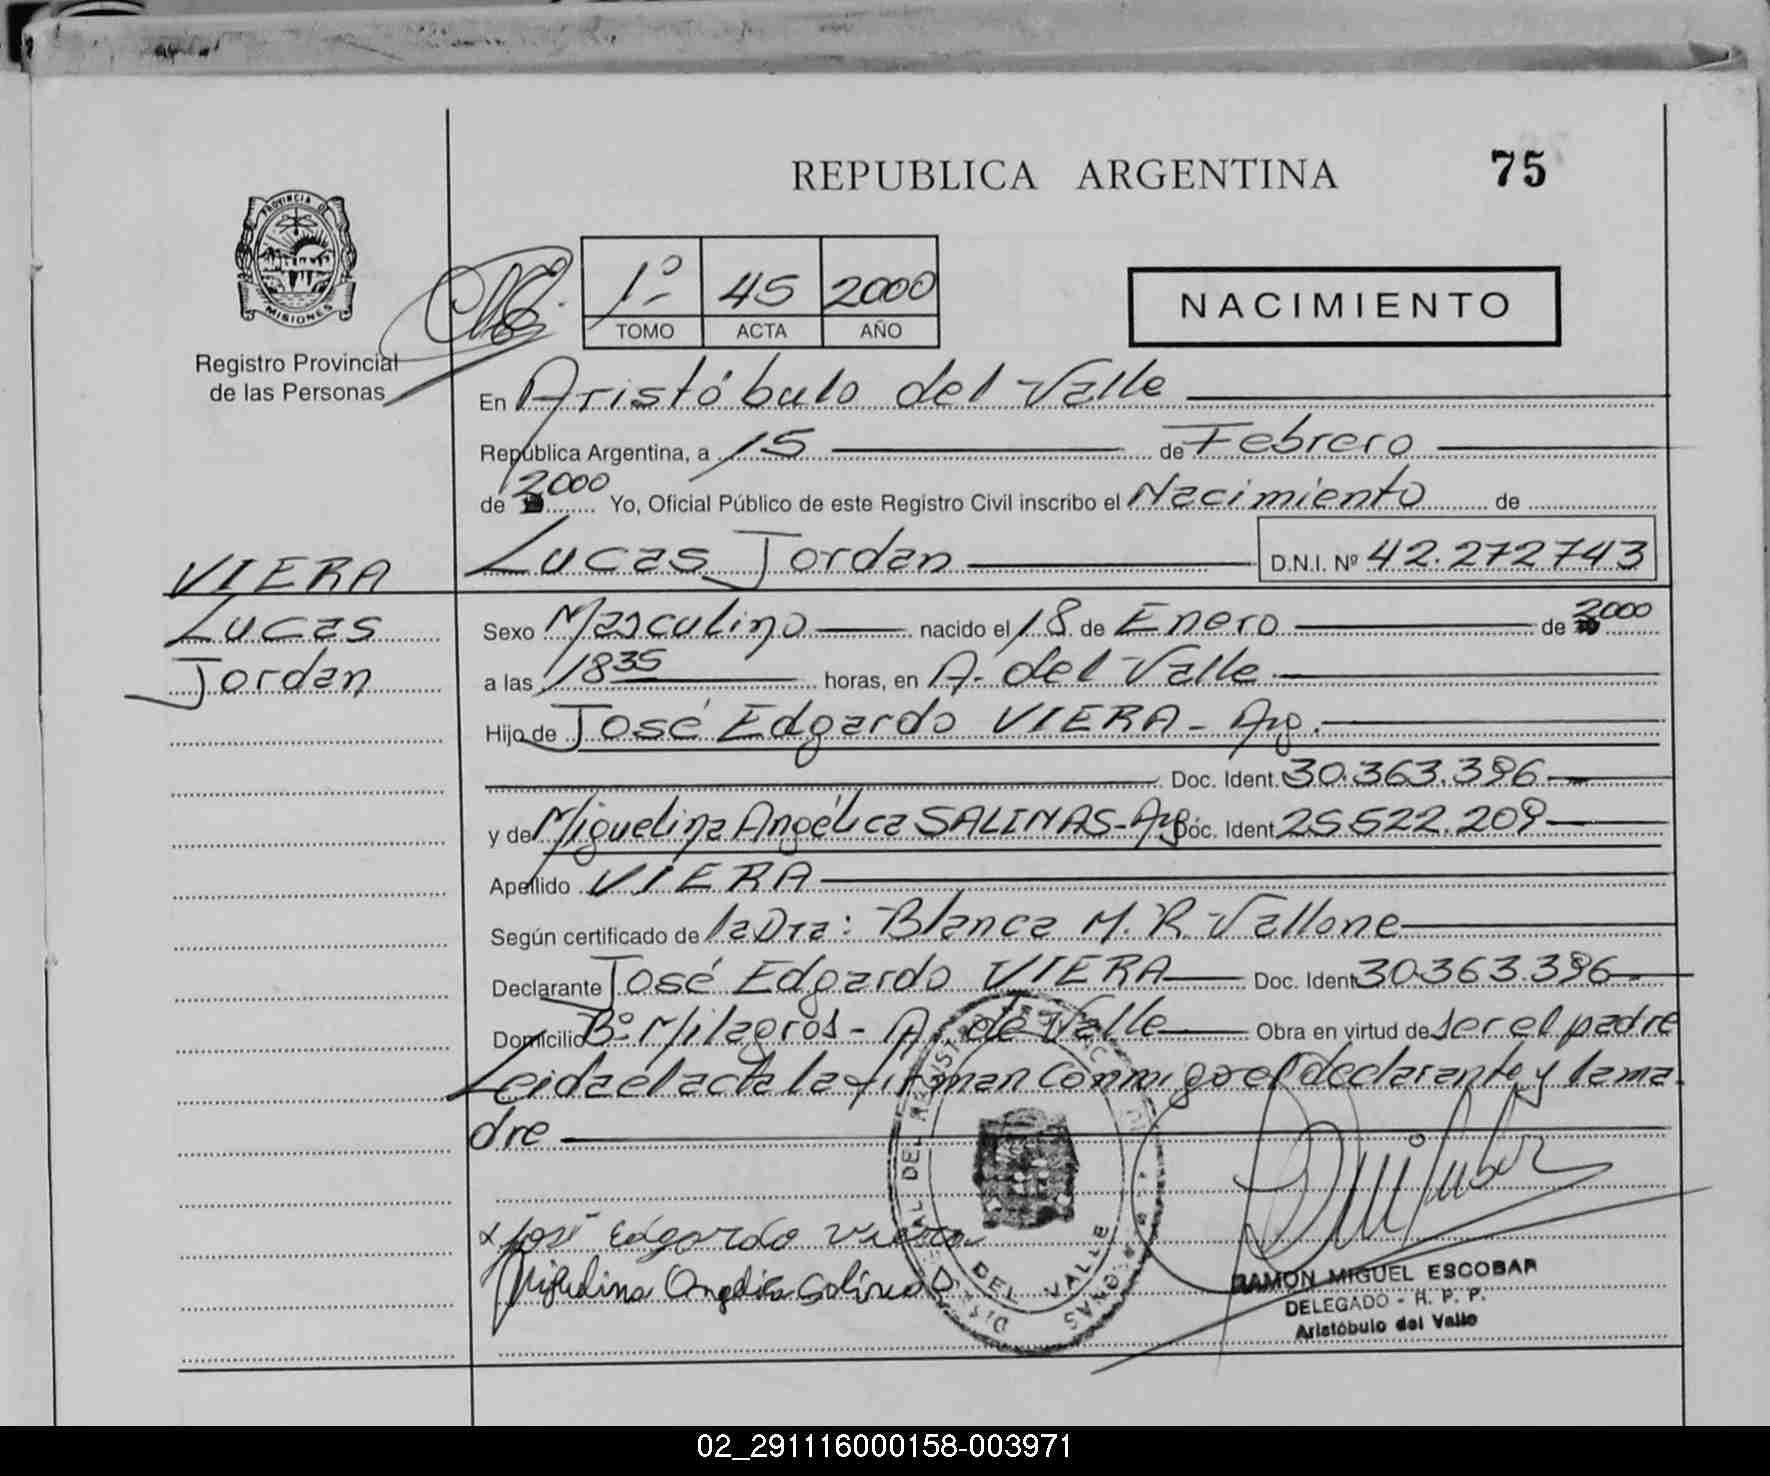 REPUBLICA ARGENTINA
75
PROVINCIA DE
MISIONES
Registro Provincial
de las Personas
1º 45 2000
TOMO ACTA AÑO
NACIMIENTO
En Aristóbulo del Valle
República Argentina, a 15 de Febrero
de 2000 Yo, Oficial Público de este Registro Civil inscribo el Nacimiento de
Lucas Jordan D.N.I. Nº 42.272743
VIERA
Lucas
Jordan
Sexo Masculino nacido el 18 de Enero de 2000
a las 18 35 horas, en A. del Valle
Hijo de José Edgardo VIERA - Arg.
Doc. Ident. 30.363.396
y de Miguelina Angélica SALINAS - Arg Doc. Ident. 25.622.209
Apellido VIERA
Según certificado de la Dra: Blanca M. R. Vallone
Declarante José Edgardo VIERA Doc. Ident 30.363.396
Domicilio Bº Milagros - A. del Valle Obra en virtud de ser el padre
Leida el acta la firman conmigo el declarante y la ma-
dre
x José Edgardo Viera
Miguelina Angelica Salinas
DEL VALLE
RAMON MIGUEL ESCOBAR
DELEGADO - R. P. P.
Aristóbulo del Valle
02_291116000158-003971